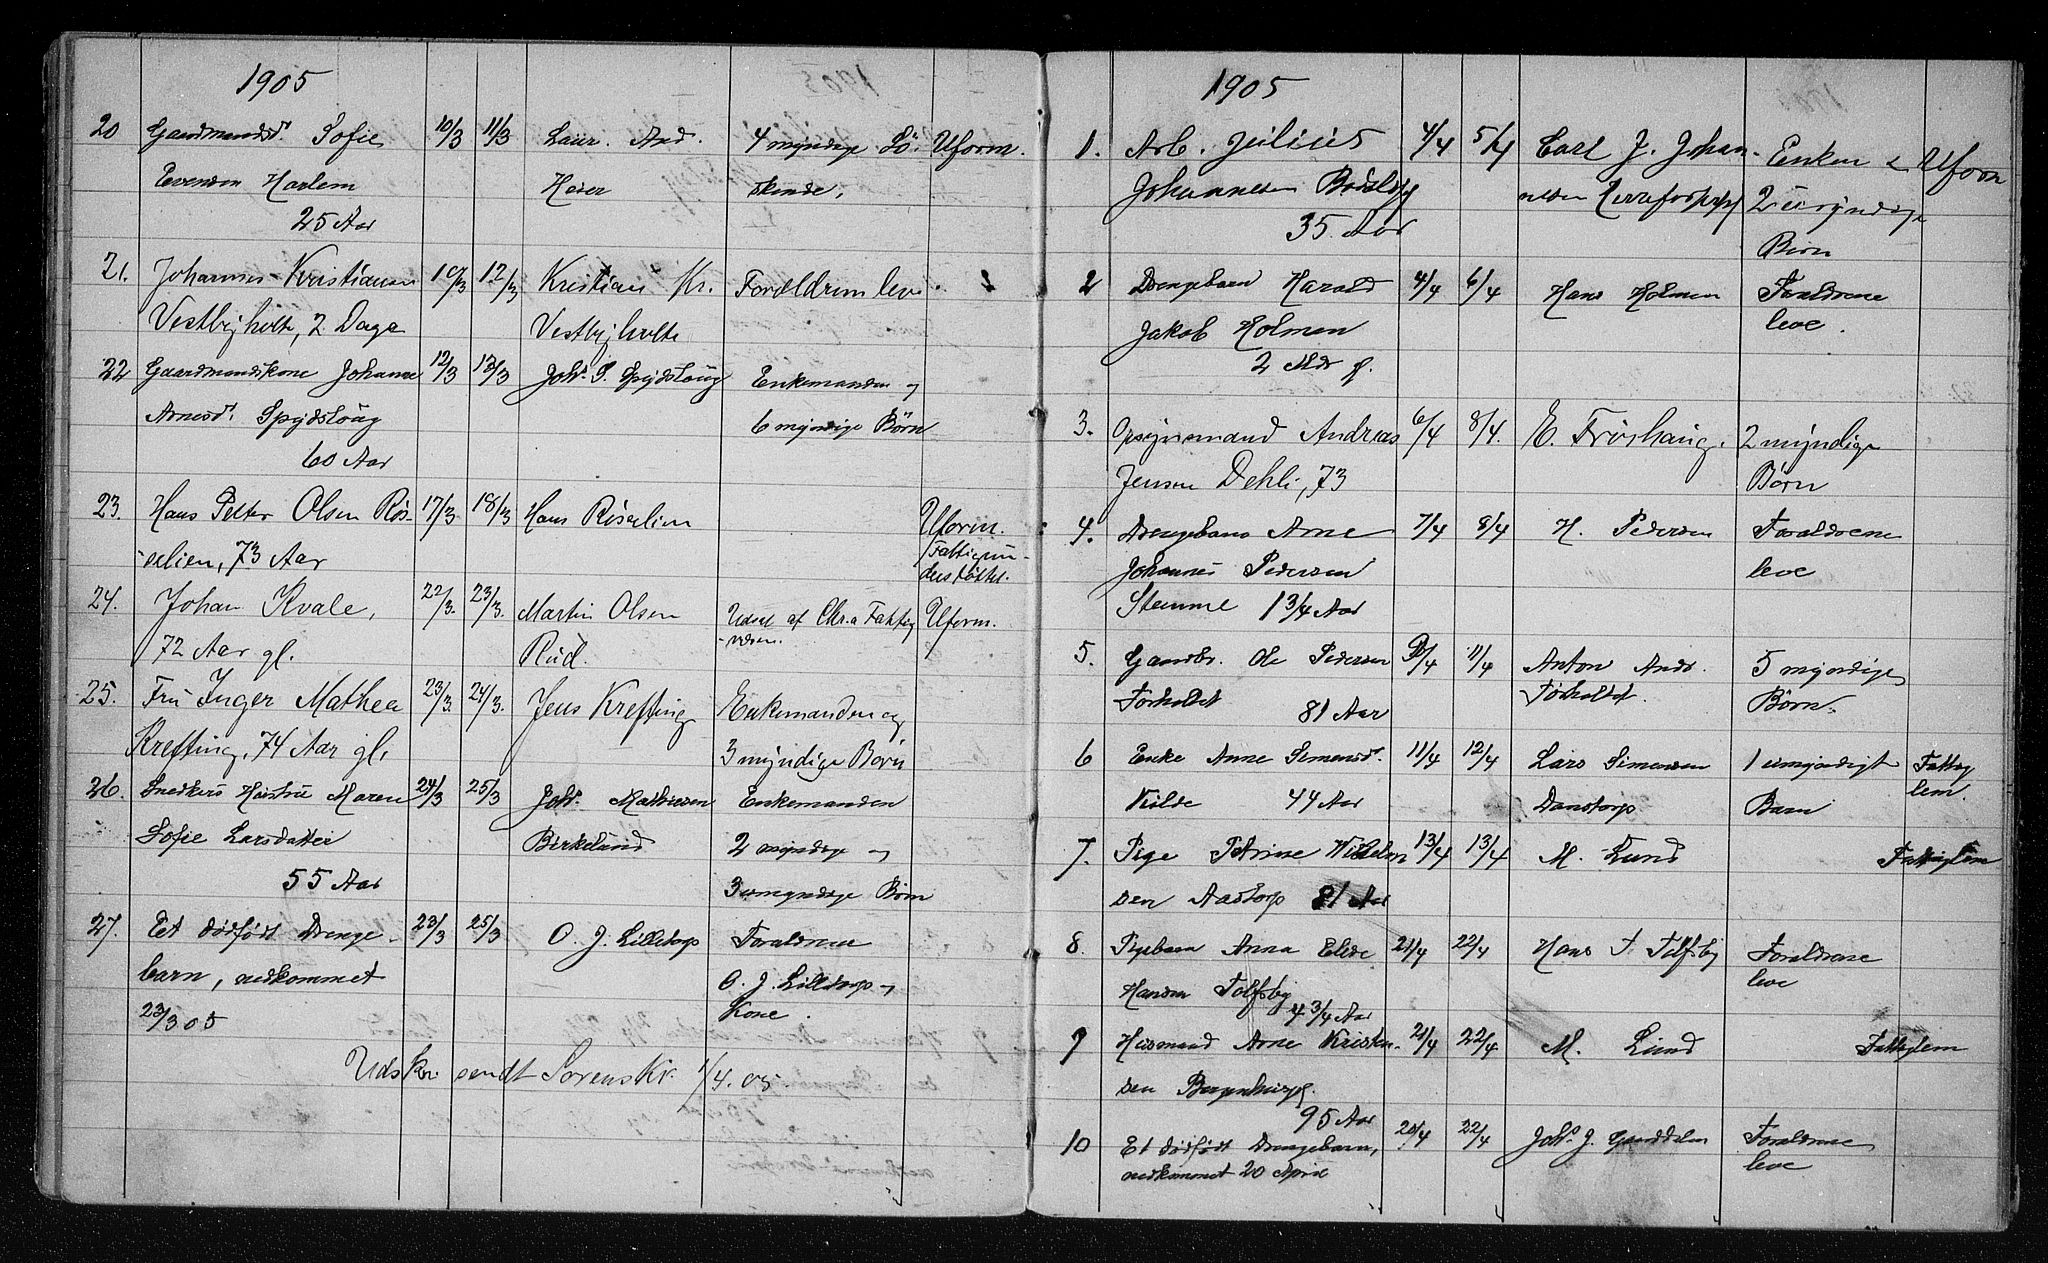 1905
20 Gaardmandsd. Sofie 10/3 11/3 Laur. And. 4 myndige Sö- Uform.
Evensen Harlem Heier skende.
25 Aar
21. Johannes Kristiansen 10/3 12/3 Kristian Kr. Forældrene leve.
Vestbyholte, 2 Dage Vestbyholte
22 Gaardmandskone Johanne 12/3 13/3 Johs. S. Spydslaug Enkemanden og
Arnesd. Spydslaug 6 myndige Børn
60 Aar
23. Hans Petter Olsen Røs- 17/3 18/3 Hans Røselien Uform.
elien, 73 Aar Fattigun-
derstöttet.
24. Johan Kvale, 22/3. 23/3. Martin Olsen Udsat af Chr.a Fattig Uform.
72 Aar gl. Rud. -væsen.
25. Fru Inger Mathea 23/3. 24/3. Jens Krefting Enkemanden og
Krefting, 74 Aar gl. 3 myndige Børn
26. Snedkers Hustru Maren 24/3 25/3 Johs. Mathiesen Enkemanden
Sofie Larsdatter Birkelund 2 myndige og
55 Aar 3 umyndige Børn
27. Et dødfødt Drenge- 23/3 25/3 O. J. Lilletorp Forældrene
barn, nedkommet O. J. Lilletorp og
23/3 05 Kone.
Udskr. sendt Sorenskr. 1/4. 05
1905
1. Arb. Julius 4/4 5/4 Carl J. Johan- Enken & Uform
Johannesen 2 umyndige
35 Aar Børn
2 Drengebarn Harald 4/4 6/4 Hans Holmen Forældrene
Jakob Holmen leve.
2 Mdr gl.
3. Opsynsmand Andreas 6/4 8/4. E. Frøshaug. 2 myndige
Jensen Dehli, 73 Børn
4. Drengebarn Arne 7/4 8/4 H. Pedersen Forældrene
Johannes Pedersen leve
Stamme 1 3/4 Aar
5. Gaardbr. Ole Pedersen 11/4 Anton Andr. 5 myndige
Torholtet 81 Aar Torholtet. Børn.
6 Enke Anne Simensd. 11/4 12/4 Lars Simensen 1 umyndigt Fattig
44 Aar Danstorp Barn lem.
7. Pige 13/4 13/4 M. Lund Fattiglem
sen Aastorp 81 Aar
8. Pigebarn Anna 21/4 22/4 Hans T. Tolfsby Forældrene
Hansen Tolfsby leve
4 3/4 Aar
9 Husmand Arne Kristen- 21/4 22/4 M. Lund Fattiglem
sen
95 Aar
10 Et dødfødt Drengebarn, 20/4 22/4 Johs. J. Forældrene
nedkommet 20 April leve